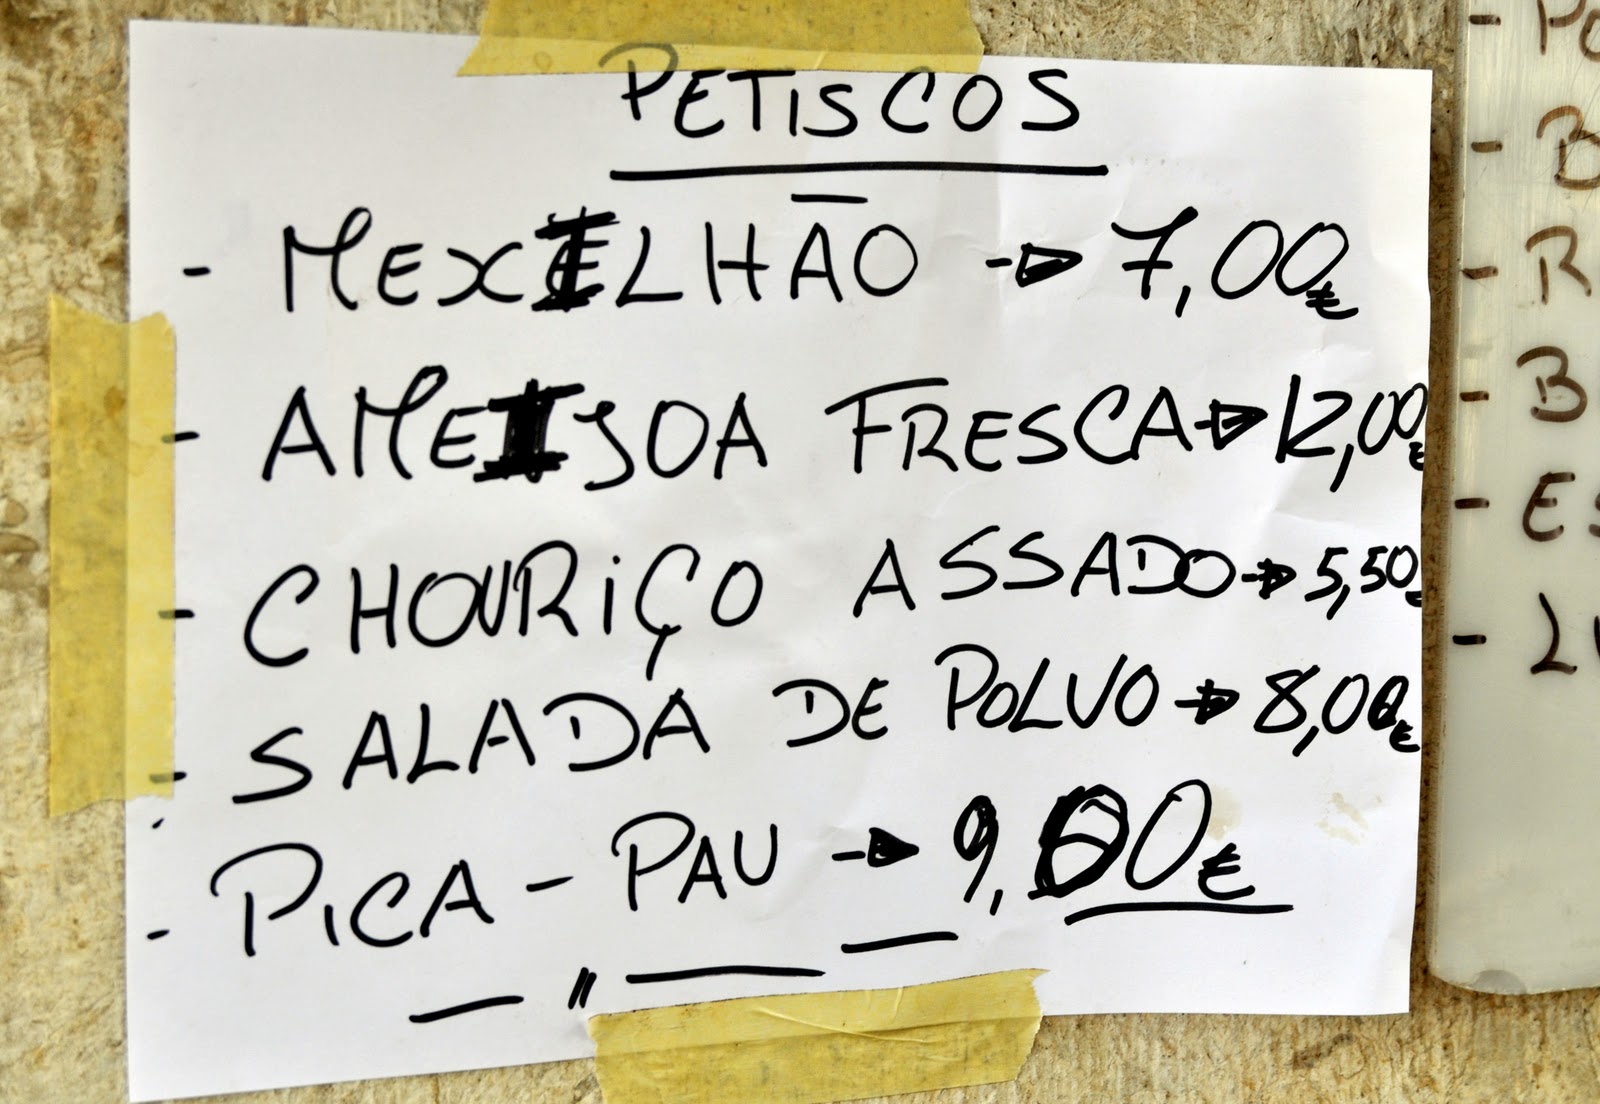 PETISCOS
- MEXILHÃO -> 7,00€
- AMEIJOA FRESCA -> 12,00€
- CHOURIÇO ASSADO -> 5,50€
- SALADA DE POLVO -> 8,00€
- PICA-PAU -> 9,00€